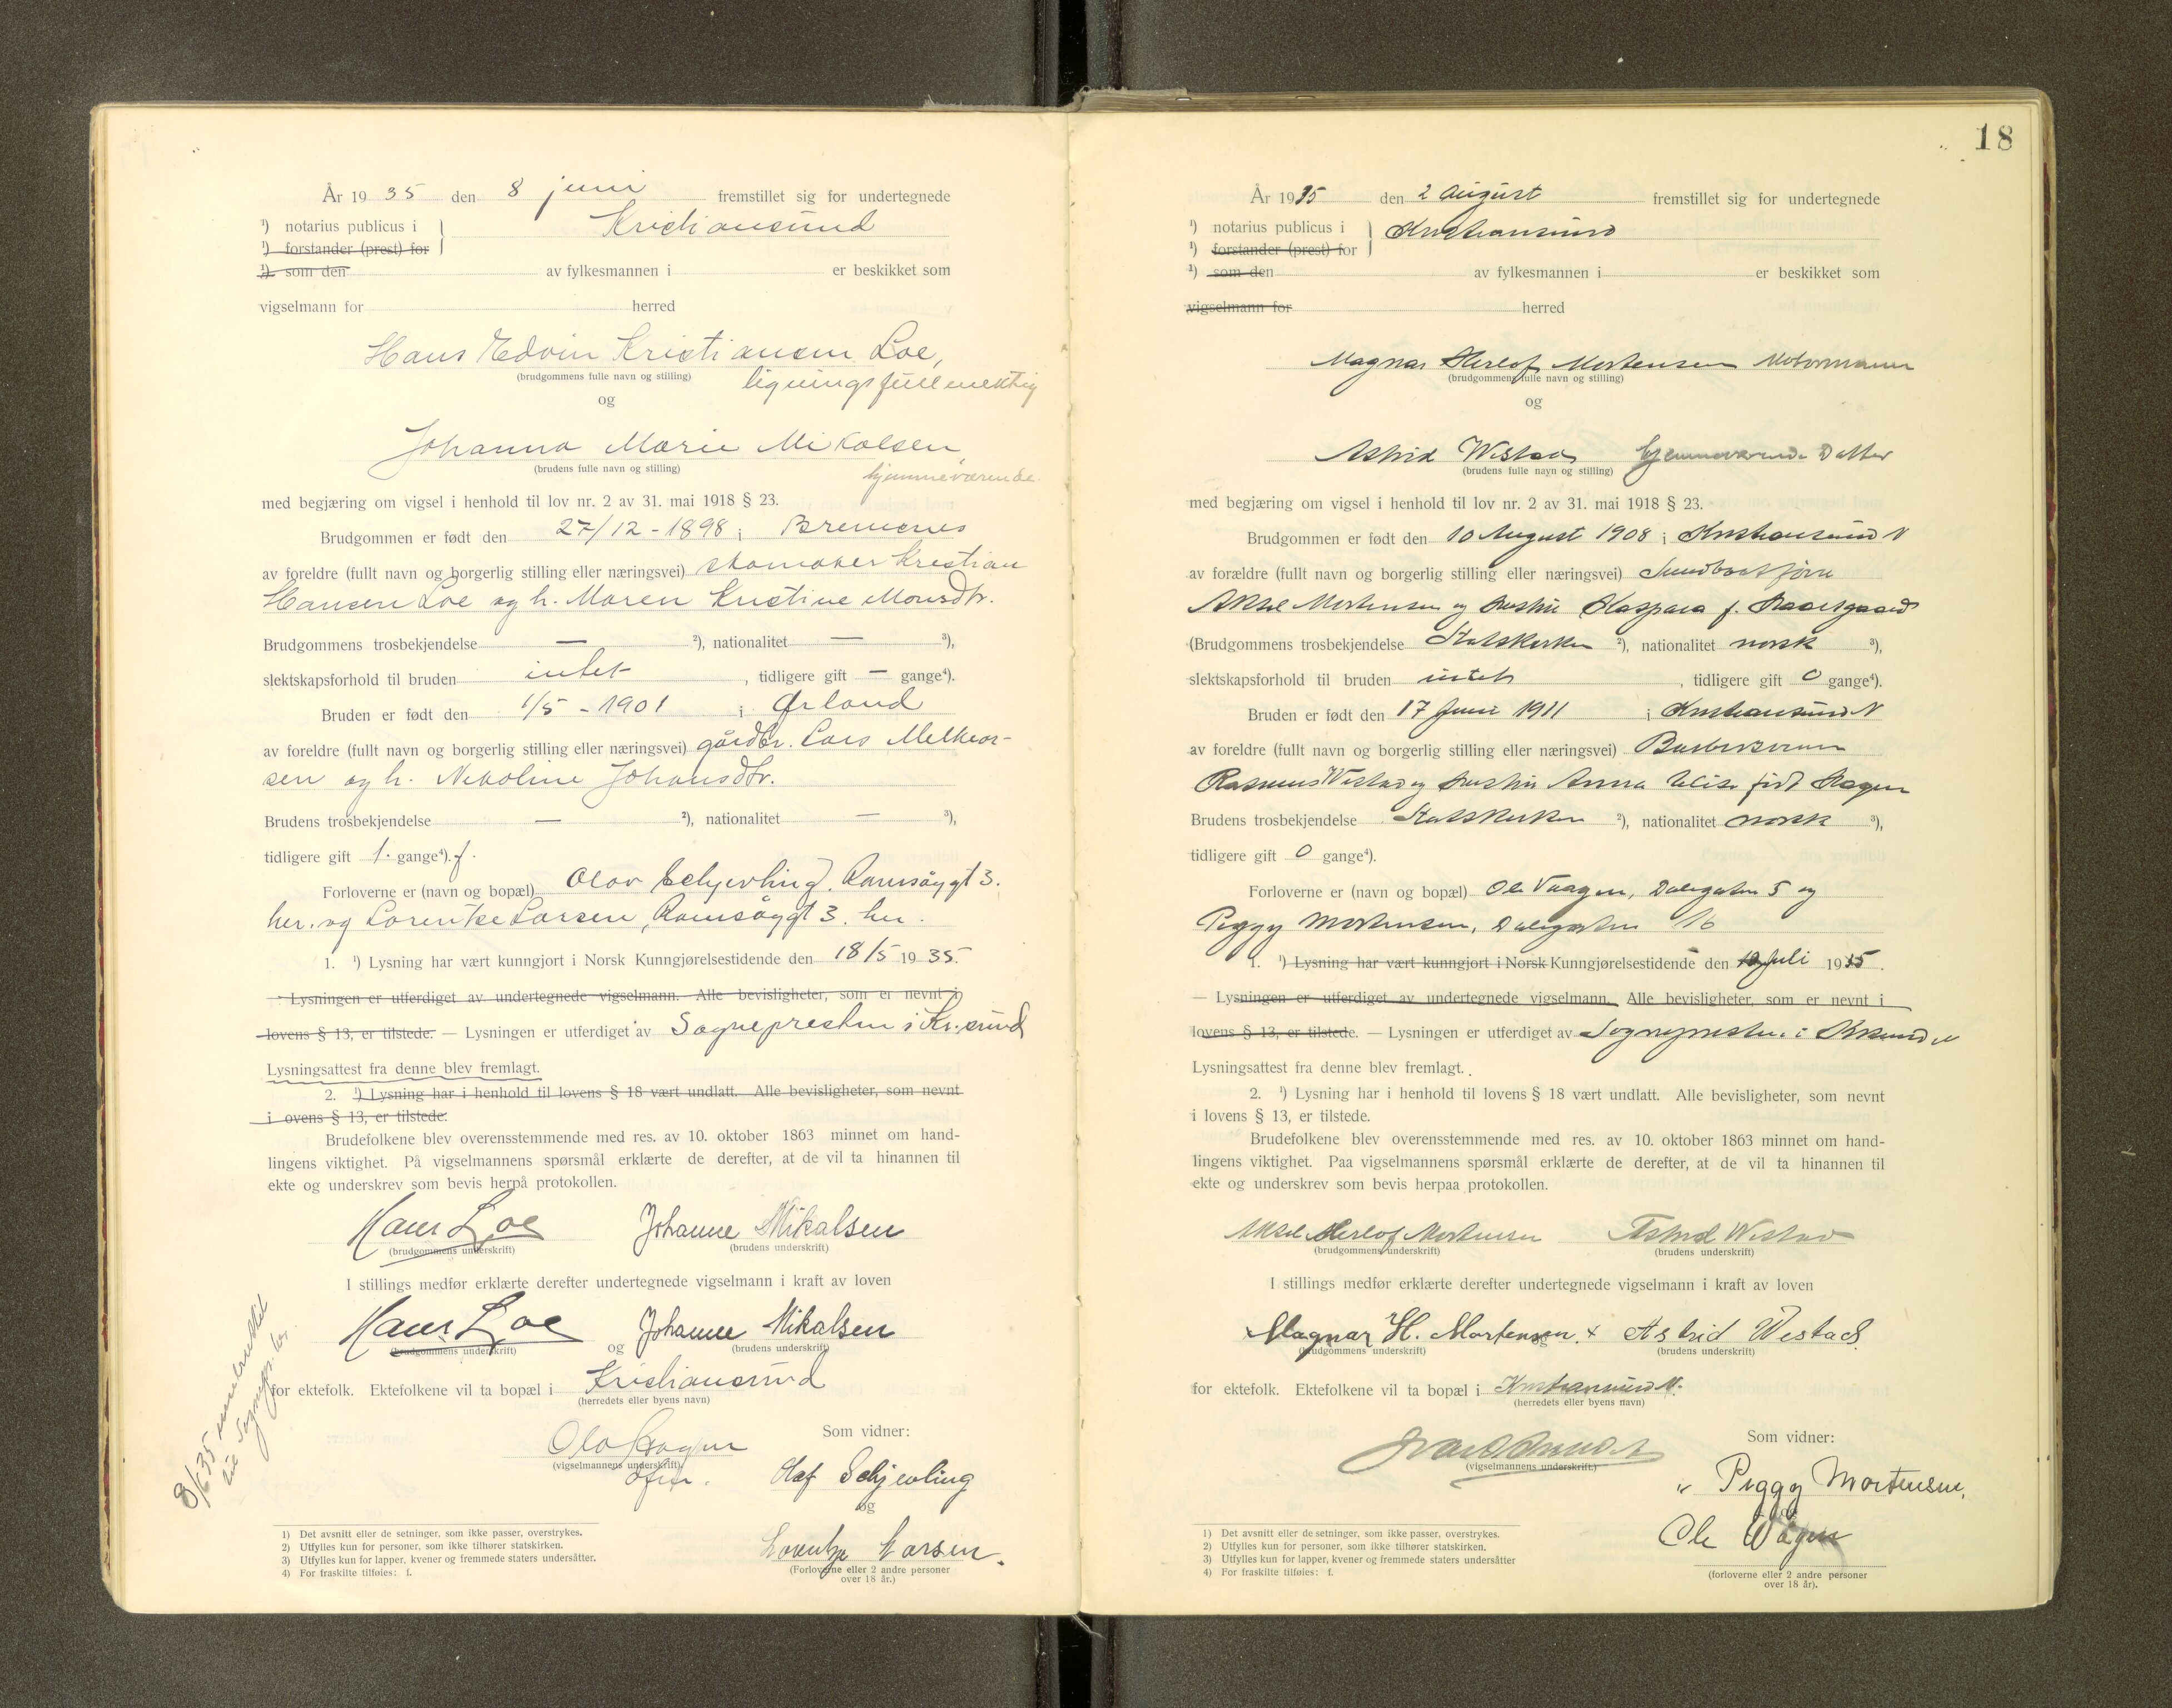 År 1935 den 8 juni fremstillet sig for undertegnede
¹) notarius publicus i } Kristiansund
¹) forstander (prest) for
¹) som den av fylkesmannen i er beskikket som
vigselmann for herred
Hans Edvin Kristiansen Loe,
(brudgommens fulle navn og stilling) ligningsfullmektig
og
Johanna Marie Mikalsen,
(brudens fulle navn og stilling) hjemmeværende.
med begjæring om vigsel i henhold til lov nr. 2 av 31. mai 1918 § 23.
Brudgommen er født den 27/12 - 1898 i Bremsnes
av foreldre (fullt navn og borgerlig stilling eller næringsvei) skomaker Kristian
Hansen Loe og h. Maren Kristine Monsdtr.
Brudgommens trosbekjendelse — ²), nationalitet — ³),
slektskapsforhold til bruden intet, tidligere gift — gange⁴).
Bruden er født den 1/5 - 1901 i Ørland
av foreldre (fullt navn og borgerlig stilling eller næringsvei) gårdbr. Lars Melkior-
sen og h. Nikoline Johansdtr.
Brudens trosbekjendelse — ²), nationalitet — ³),
tidligere gift 1. gange⁴). f.
Forloverne er (navn og bopæl) Olav Schjevling, Ramsøygt 3.
her. og Lorentze Larsen, Ramsøygt 3. her.
1. ¹) Lysning har vært kunngjort i Norsk Kunngjørelsestidende den 18/5 1935.
- Lysningen er utferdiget av undertegnede vigselmann. Alle bevisligheter, som er nevnt i
lovens § 13, er tilstede. — Lysningen er utferdiget av Sognepresten i Kr.sund
Lysningsattest fra denne blev fremlagt.
2. ¹) Lysning har i henhold til lovens § 18 vært undlatt. Alle bevisligheter, som nevnt
i ovens § 13, er tilstede.
Brudefolkene blev overensstemmende med res. av 10. oktober 1863 minnet om hand-
lingens viktighet. På vigselmannens spørsmål erklærte de derefter, at de vil ta hinannen til
ekte og underskrev som bevis herpå protokollen.
Hans Loe Johanne Mikalsen
(brudgommens underskrift) (brudens underskrift)
I stillings medfør erklærte derefter undertegnede vigselmann i kraft av loven
Hans Loe og Johanne Mikalsen
(brudgommens underskrift) (brudens underskrift)
for ektefolk. Ektefolkene vil ta bopæl i Kristiansund
(herredets eller byens navn)
8/6 35
Som vidner:
(vigselmannens underskrift)
Olaf Schjevling
og
Lorentze Larsen.
(Forloverne eller 2 andre personer
over 18 år.)
1) Det avsnitt eller de setninger, som ikke passer, overstrykes.
2) Utfylles kun for personer, som ikke tilhører statskirken.
3) Utfylles kun for lapper, kvener og fremmede staters undersåtter.
4) For fraskilte tilføies: f.
18
År 1935 den 2 August fremstillet sig for undertegnede
¹) notarius publicus i } Kristiansund
¹) forstander (prest) for
¹) som den av fylkesmannen i er beskikket som
vigselmann for herred
Magnar Herlof Mortensen Motormann
(brudgommens fulle navn og stilling)
og
Astrid Wistad hjemmeværende Datter
(brudens fulle navn og stilling)
med begjæring om vigsel i henhold til lov nr. 2 av 31. mai 1918 § 23.
Brudgommen er født den 10 August 1908 i Kristiansund N
av forældre (fullt navn og borgerlig stilling eller næringsvei) Sundbaatfører
Aksel Mortensen og hustru Kaspara f.
(Brudgommens trosbekjendelse Statskirken ²), nationalitet norsk ³),
slektskapsforhold til bruden intet, tidligere gift 0 gange⁴).
Bruden er født den 17 Juni 1911 i Kristiansund N
av foreldre (fullt navn og borgerlig stilling eller næringsvei)
Rasmus Wistad og hustru Anna Elise født Hagen
Brudens trosbekjendelse Statskirken ²), nationalitet norsk ³),
tidligere gift 0 gange⁴).
Forloverne er (navn og bopæl) Ole Vaagen, Dalegaten 5 og
Peggy Mortensen, Dalegaten 16
1. ¹) Lysning har vært kunngjort i Norsk Kunngjørelsestidende den Juli 1935.
— Lysningen er utferdiget av undertegnede vigselmann. Alle bevisligheter, som er nevnt i
lovens § 13, er tilstede. — Lysningen er utferdiget av Sognepresten i Krsund N
Lysningsattest fra denne blev fremlagt.
2. ¹) Lysning har i henhold til lovens § 18 vært undlatt. Alle bevisligheter, som nevnt
i lovens § 13, er tilstede.
Brudefolkene blev overensstemmende med res. av 10. oktober 1863 minnet om hand-
lingens viktighet. Paa vigselmannens spørsmål erklærte de derefter, at de vil ta hinannen til
ekte og underskrev som bevis herpaa protokollen.
Aksel Herlof Mortensen Astrid Wistad
(brudgommens underskrift) (brudens underskrift)
I stillings medfør erklærte derefter undertegnede vigselmann i kraft av loven
Magnar H. Mortensen. og x Astrid Westad.
(brudgommens underskrift) (brudens underskrift)
for ektefolk. Ektefolkene vil ta bopæl i Kristiansund N.
(herredets eller byens navn)
Som vidner:
(vigselmannens underskrift)
" Peggy Mortensen,
og
Ole Wågen
(forloverne eller 2 andre personer
over 18 år).
1) Det avsnitt eller de setninger, som ikke passer, overstrykes.
2) Utfylles kun for personer, som ikke tilhører statskirken.
3) Utfylles kun for lapper, kvener og fremmede staters undersåtter
4) For fraskilte tilføies: f.